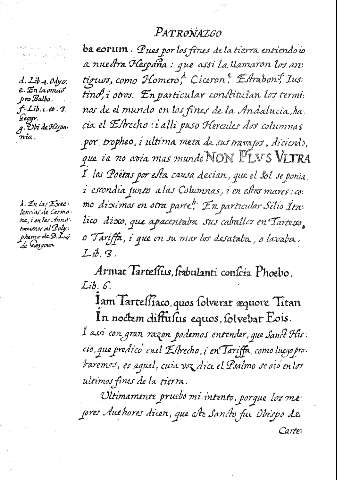 PATRONAZGO
ba eorum. Pues por los fines de la tierra entiendo io
a nuestra Hespaña: que assi la llamaron los an-
tiguos, como Homero, Ciceron, Estrabon, Ius-
tino, i otros. En particular constituian los termi-
nos de el mundo en los fines de la Andalucia, ha-
cia el Estrecho: i alli puso Hercules dos columnas
por tropheo, i ultima meta de sus travajos, diciendo,
que ia no avia mas mundo NON PLVS VLTRA
I las Poëtas por esta causa decian, que el Sol se ponia
i escondia junto a las Columnas, i en estos mares: co-
mo diximos en otra parte. En particular Silio Ita-
lico dixo, que apacentaba sus cavallos en Tartesso,
o Tariffa, i que en su mar los desataba, o lavaba.
Lib. 3.
Armat Tartessus, stabulanti conscia Phoebo.
Lib. 6.
Iam Tartessiaco, quos solverat aequore Titan
In noctem diffusus equos, solvebat Eois.
I assi con gran razon podemos entender, que Sanct His-
cio, que predicò en el Estrecho, i en Tariffa, como luego pro-
baremos, es aquel, cuia voz dice el Psalmo se oio en los
ultimos fines de la tierra.
Ultimamente pruebo mi intento, porque los me-
jores Authores dicen, que este Sancto fue Obispo de
Carte-
d. Lib. 4. Odys.
e. En la oraciõ
pro Balbo.
f. Lib. 1. &. 3.
Geogr.
g. De Hispa-
nia.